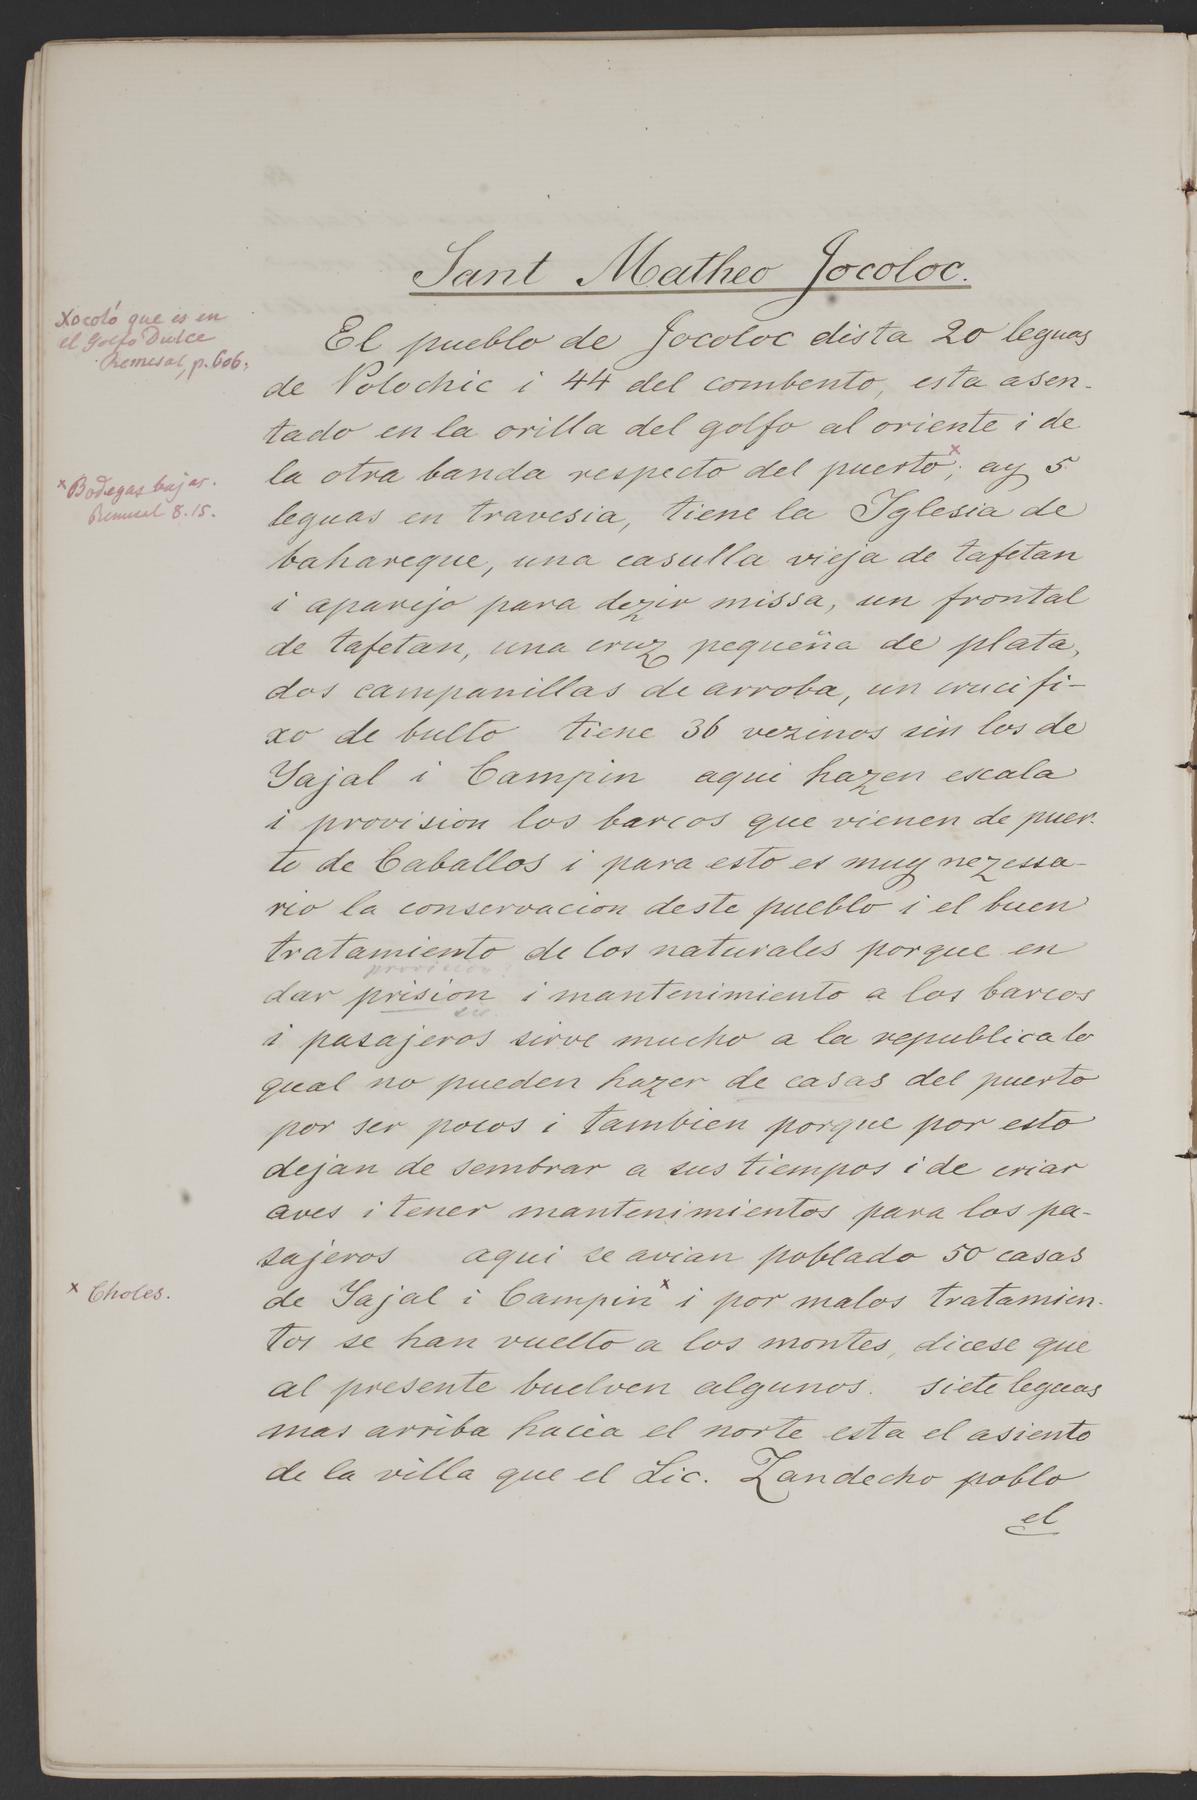 Sant Matheo Jocoloc.
Xocoló que es en
el golfo Dulce
Remesal, p. 606.
El pueblo de Jocoloc dista 20 leguas
de Polochic i 44 del combento, esta asen-
tado en la orilla del golfo al oriente i de
la otra banda respecto del puerto x; ay 5
x Bodegas bajas.
Remesal 8.15.
leguas en travesia, tiene la Iglesia de
bahareque, una casulla vieja de tafetan
i aparejo para dezir missa, un frontal
de tafetan, una cruz pequeña de plata,
dos campanillas de arroba, un crucifi-
xo de bulto tiene 36 vezinos sin los de
Yajal i Campin aqui hazen escala
i provision los barcos que vienen de puer-
to de Caballos i para esto es muy nezessa-
rio la conservacion deste pueblo i el buen
tratamiento de los naturales porque en
provision?
dar prision i mantenimiento a los barcos
sic.
i pasajeros sirve mucho a la republica lo
qual no pueden hazer de casas del puerto
por ser pocos i tambien porque por esto
dejan de sembrar a sus tiempos i de criar
aves i tener mantenimientos para los pa-
sajeros aqui se avian poblado 50 casas
x Choles.
de Yajal i Campin x i por malos tratamien-
tos se han vuelto a los montes, dicese que
al presente buelven algunos. siete leguas
mas arriba hacia el norte esta el asiento
de la villa que el Lic. Zandecho poblo
el